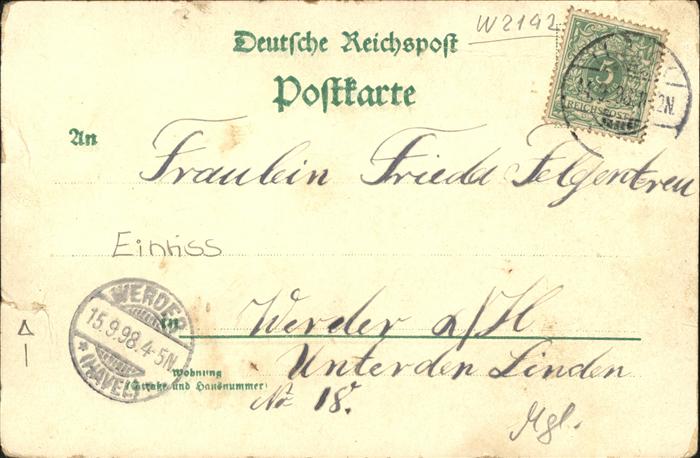 W2142
Deutsche Reichspost
Postkarte
5
REICHSPOST
An
Fräulein Frieda Felgentreu
Einriss
WERDER
15.9.98.4-5N
* (HAVEL)
in Werder a/H
Wohnung
(Straße und Hausnummer)
Unter den Linden
No 18.
Mgl.